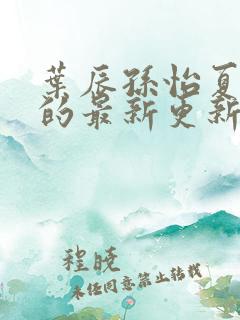 葉辰孫怡夏
的最新更新
程曉
未任同意禁止转载